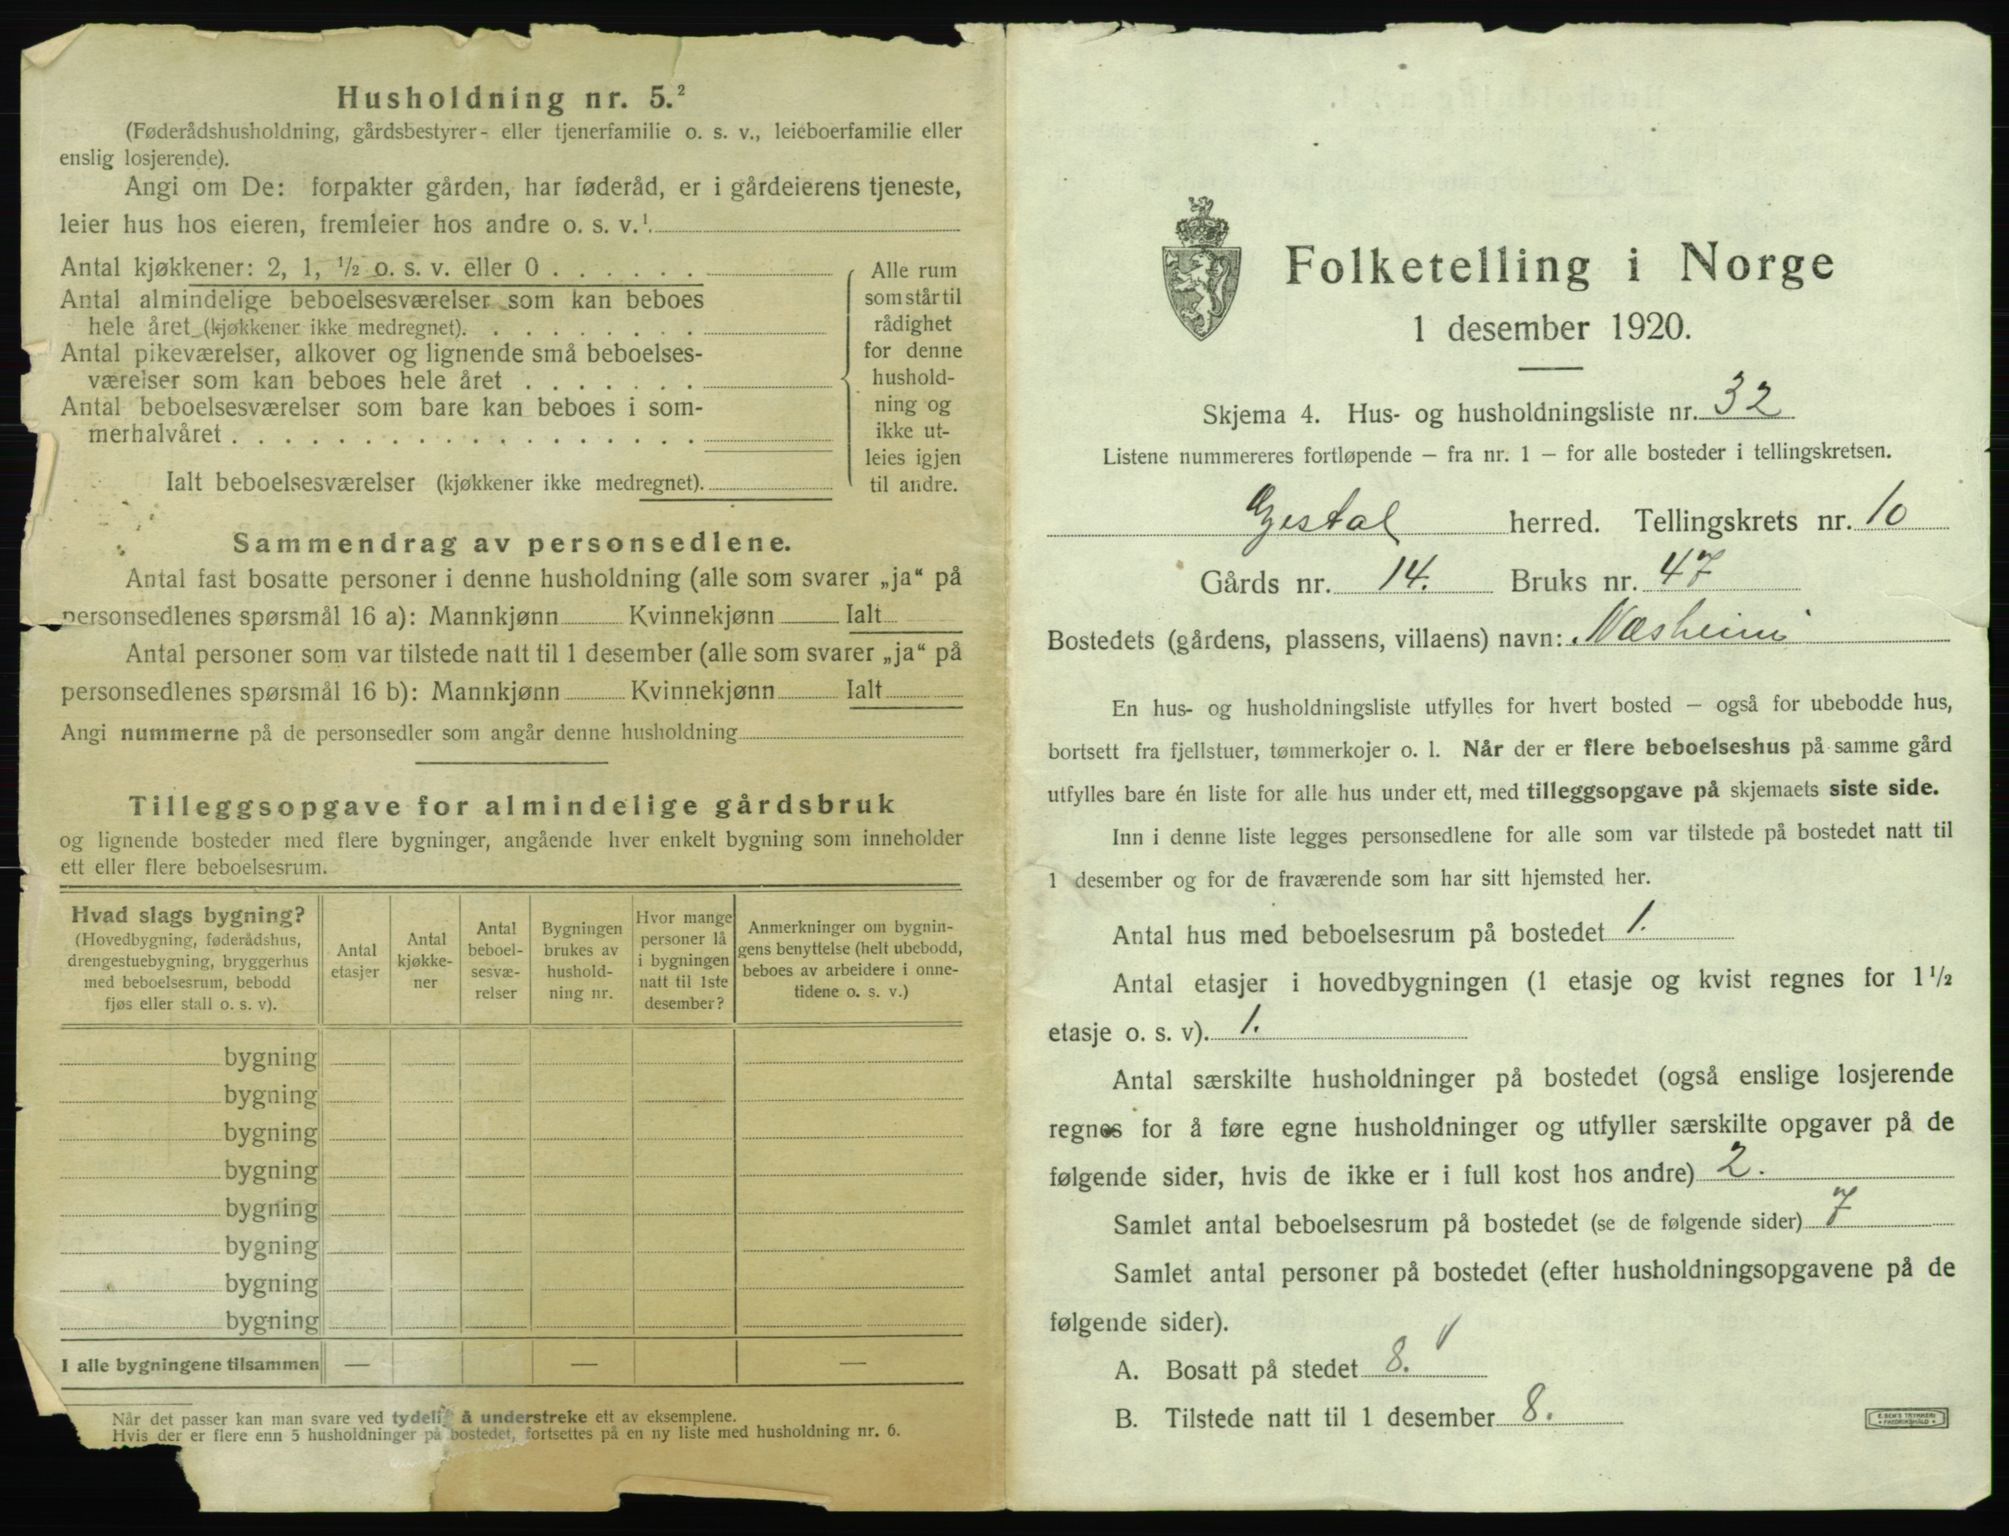 Husholdning nr. 5.²
(Føderådshusholdning, gårdsbestyrer- eller tjenerfamilie o. s. v., leieboerfamilie eller
enslig losjerende).
Angi om De: forpakter gården, har føderåd, er i gårdeierens tjeneste,
leier hus hos eieren, fremleier hos andre o. s. v.¹
Antal kjøkkener: 2, 1, ½ o. s. v. eller 0 . . . . . .
Antal almindelige beboelsesværelser som kan beboes
hele året (kjøkkener ikke medregnet). . . . . . . . .
Antal pikeværelser, alkover og lignende små beboelses-
værelser som kan beboes hele året . . . . . . .
Antal beboelsesværelser som bare kan beboes i som-
merhalvåret . . . . . . . . . . . . . . . . . .
Ialt beboelsesværelser (kjøkkener ikke medregnet).
Alle rum
som står til
rådighet
for denne
hushold-
ning og
ikke ut-
leies igjen
til andre.
Sammendrag av personsedlene.
Antal fast bosatte personer i denne husholdning (alle som svarer „ja“ på
personsedlenes spørsmål 16 a): Mannkjønn Kvinnekjønn Ialt
Antal personer som var tilstede natt til 1 desember (alle som svarer „ja“ på
personsedlenes spørsmål 16 b): Mannkjønn Kvinnekjønn Ialt
Angi nummerne på de personsedler som angår denne husholdning
Tilleggsopgave for almindelige gårdsbruk
og lignende bosteder med flere bygninger, angående hver enkelt bygning som inneholder
ett eller flere beboelsesrum.
Hvad slags bygning?
(Hovedbygning, føderådshus,
drengestuebygning, bryggerhus
med beboelsesrum, bebodd
fjøs eller stall o. s. v).
Antal
etasjer
Antal
kjøkke-
ner
Antal
beboel-
sesvæ-
relser
Bygningen
brukes av
hushold-
ning nr.
Hvor mange
personer lå
i bygningen
natt til 1ste
desember?
Anmerkninger om bygnin-
gens benyttelse (helt ubebodd,
beboes av arbeidere i onne-
tidene o. s. v.)
bygning
bygning
bygning
bygning
bygning
bygning
bygning
bygning
I alle bygningene tilsammen — — —
Når det passer kan man svare ved tydelig å understreke ett av eksemplene.
Hvis der er flere enn 5 husholdninger på bostedet, fortsettes på en ny liste med husholdning nr. 6.
Folketelling i Norge
1 desember 1920.
Skjema 4. Hus- og husholdningsliste nr. 32
Listene nummereres fortløpende – fra nr. 1 – for alle bosteder i tellingskretsen.
Gjestal herred. Tellingskrets nr. 10
Gårds nr. 14. Bruks nr. 47
Bostedets (gårdens, plassens, villaens) navn: Næsheim
En hus- og husholdningsliste utfylles for hvert bosted – også for ubebodde hus,
bortsett fra fjellstuer, tømmerkojer o. l. Når der er flere beboelseshus på samme gård
utfylles bare én liste for alle hus under ett, med tilleggsopgave på skjemaets siste side.
Inn i denne liste legges personsedlene for alle som var tilstede på bostedet natt til
1 desember og for de fraværende som har sitt hjemsted her.
Antal hus med beboelsesrum på bostedet 1.
Antal etasjer i hovedbygningen (1 etasje og kvist regnes for 1½
etasje o. s. v). 1.
Antal særskilte husholdninger på bostedet (også enslige losjerende
regnes for å føre egne husholdninger og utfyller særskilte opgaver på de
følgende sider, hvis de ikke er i full kost hos andre) 2.
Samlet antal beboelsesrum på bostedet (se de følgende sider) 7
Samlet antal personer på bostedet (efter husholdningsopgavene på de
følgende sider).
A. Bosatt på stedet 8.
B. Tilstede natt til 1 desember 8.
E. SEM'S TRYKKERI
FREDRIKSHALD